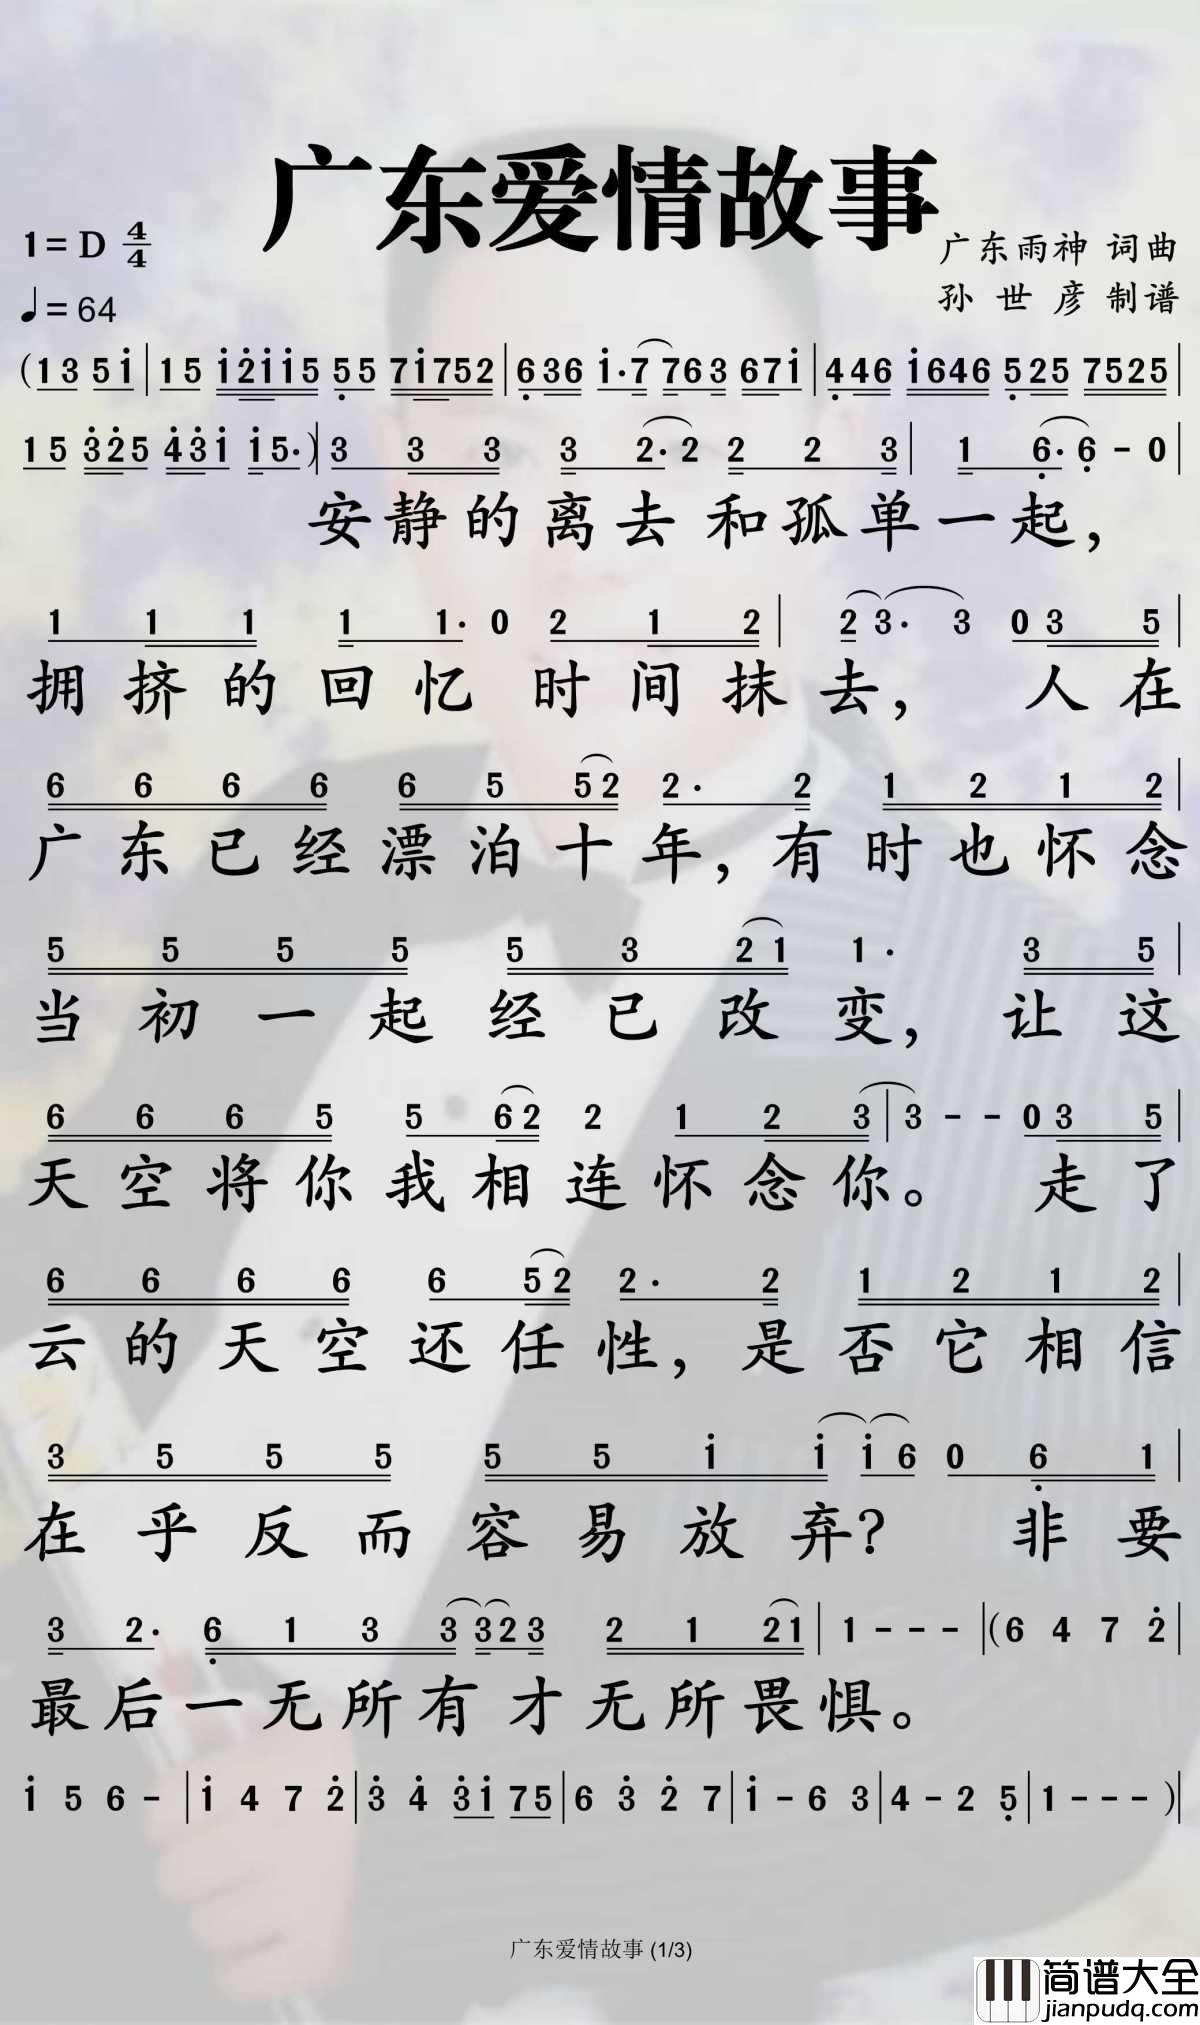 广东爱情故事
1=D 4/4
广东雨神 词曲
♩=64
孙世彦 制谱
(13 5i | 15 i2ii5 55 7i752 | 636 i·7 763 67i | 446 i646 525 7525 |
15 325 43i i5·) | 3 3 3 3 2·2 2 2 3 | 1 6·6 - 0 |
安静的离去 和孤单一起,
1 1 1 1 1· 0 2 1 2 | 2 3· 3 0 3 5 |
拥挤的回忆 时间抹去, 人在
6 6 6 6 6 5 5 2 2· 2 1 2 1 2 |
广东已经漂泊十年,有时也怀念
5 5 5 5 5 3 2 1 1· 3 5 |
当初一起经已改变,让这
6 6 6 5 5 6 2 2 1 2 3 | 3 - - 0 3 5 |
天空将你我相连怀念你。 走了
6 6 6 6 6 5 2 2· 2 1 2 1 2 |
云的天空还任性,是否它相信
3 5 5 5 5 5 i i i 6 0 6 1 |
在乎反而容易放弃? 非要
3 2· 6 1 3 3 3 2 3 2 1 2 1 | 1 - - - | (6 4 7 2 |
最后一无所有才无所畏惧。
i 5 6 - | i 4 7 2 | 3 4 3i 75 | 6 3 2 7 | i - 6 3 | 4 - 2 5 | 1 - - - ) |
广东爱情故事 (1/3)
简谱大全
jianpudq.com